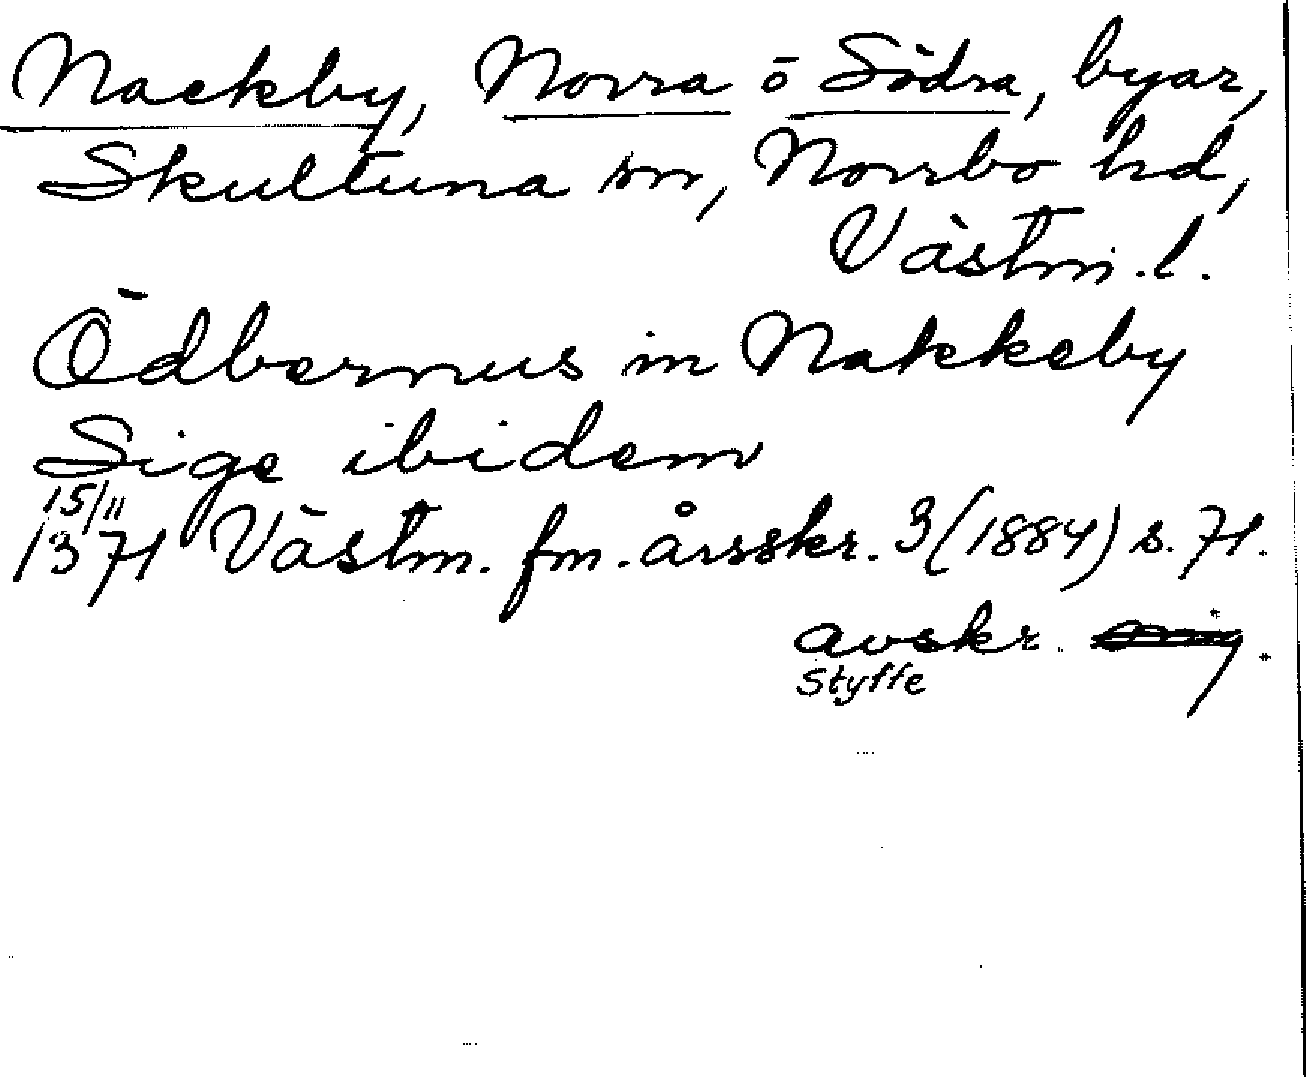 Nackby, Norra o Södra, byar,
Skultuna sn, Norrbo hd,
Västm. l.
Ödbernus in Nakkeby
Sige ibidem
15/11
1371 Västm. fm. årsskr. 3 (1884) s. 71.
avskr.
Styffe